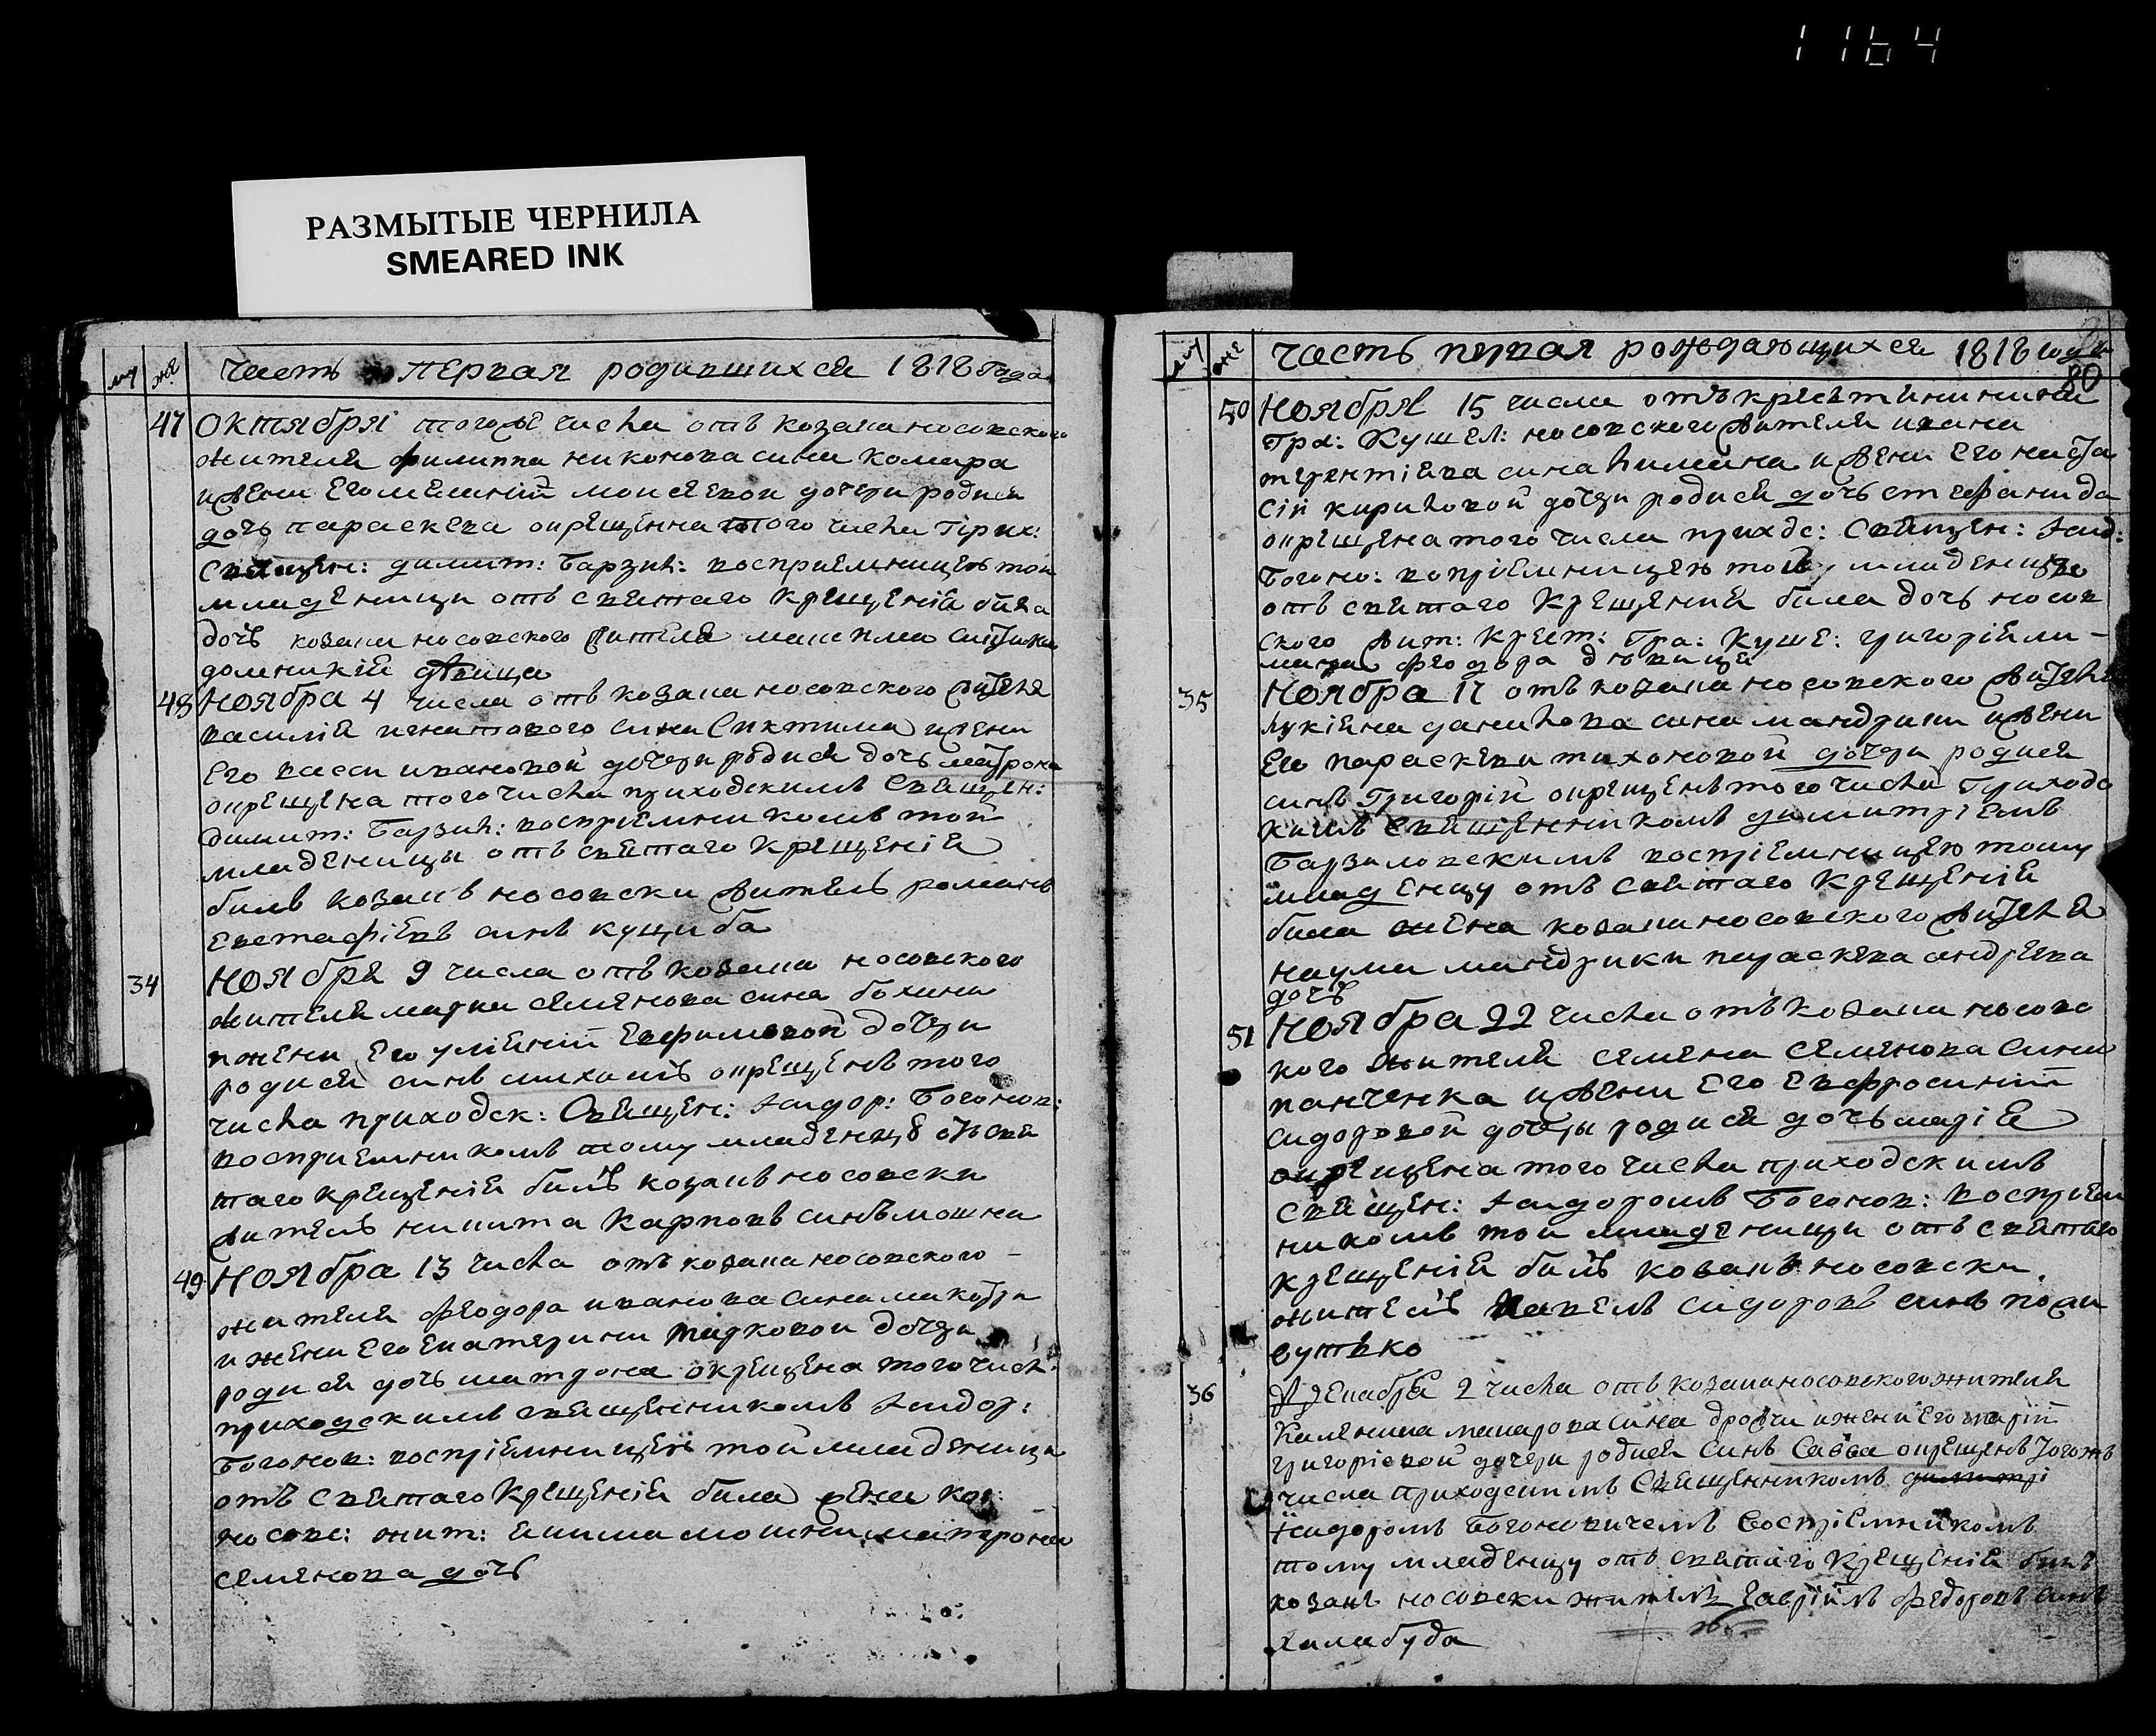 1164
РАЗМЫТЫЕ ЧЕРНИЛА
SMEARED INK
му же
часть первая родившихся 1818 Года
47 Октября того же числа отъ козака носовского
жителя филиппа никонова сина комара
и жени его мелании моисеевой дочери родися
дочь параскева окрещенна того числа прих:
Священ: димит: Барзил: восприемницею той
младеници отъ святаго крещенія била
дочь козака носовского жителя максима
домникія девица
48 Ноября 4 числа отъ козака носовского жителя
василія игнатового сина и жени
Его васси ивановой дочери родися дочь матрона
окрещена того числа приходскимъ Священ:
димит: Барзил: воспріемникомъ той
младеницы отъ святаго крещенія
билъ козакъ носовски житель романъ
Евстафіевъ синъ куциба
34 Ноября 9 числа отъ козака носовского
жителя марка семенова сина
и жени Его уліянии Евфимовой дочери
родися синъ михаилъ окрещенъ того
числа приходск: Священ: Ісидор: Богонов:
восприемникомъ тому младенцу отъ свя
таго крещенія билъ козакъ носовски
житель никита Карповъ синъ мошна
49 Ноября 13 числа отъ козака носовского
жителя феодора иванова сина
и жени Его Екатерини марковой дочери
родися дочь матрона окрещена того числ:
приходскимъ священникомъ Ісидор:
Богонов: воспріемницею той младеници
отъ святаго Крещенія била жена коз:
носовс: жит: мошни матрона
семенова дочь
му же
часть первая рождающихся 1818 года
80
50 Ноября 15 числа отъ крестянина
Гра: Кушел: носовского жителя ивана
терентіева сина и жени Его
сіи кириловой дочери родися дочь стефанида
окрещена того числа приходс: Священ: Ісид:
Богоно: вопріемницею той младеници
отъ святаго Крещения била дочь носов
ского жит: Крест: Гра: Куше: григорія
феодора девица
35 Ноября 17 отъ козака носовского жителя
лукіяна данилова сина мандрики и жени
Его параскеви тихоновой дочери родися
синъ Григорій окрещенъ того числа Приходс
кимъ Священникомъ димитріемъ
Барзиловскимъ воспріемницею тому
младенцу отъ святаго Крещенія
била жена козака носовского жителя
наума мандрики параскева андреева
дочь
51 Ноября 22 числа отъ козака носовс
кого жителя семена семенова сина
панченка и жени Его Евфросинии
сидоровой дочеры родися дочь марія
окрещена того числа приходскимъ
Священ: Ісидоромъ Богонов: воспріем
никомъ той младеници отъ святаго
крещенія билъ козакъ носовски
жителъ павелъ сідоровъ синъ
36 Декабря 2 числа отъ козака носовского жителя
макарова сина и жени Его марии
григоріевой дочери родися синъ Савва окрещенъ тогожъ
числа приходскимъ Священникомъ димитрі
Ісидоромъ Богоновичемъ Воспріемникомъ
тому младенцу отъ святаго Крещенія билъ
козакъ носовски житель Гавріилъ федоровъ синъ
халабуда